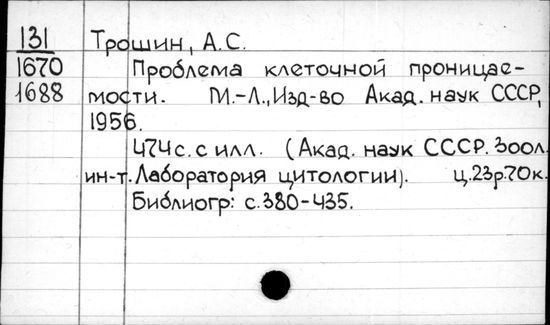 131 Трошин, А.С.
1670 Проблема клеточной проницае-
1688 мости. М.-Л., Изд-во Акад. наук СССР,
1956.
474с. с илл. (Акад. наук СССР. Зоол.
ин-т. Лаборатория цитологии). ц.23р.70к.
Библиогр: с.380-435.